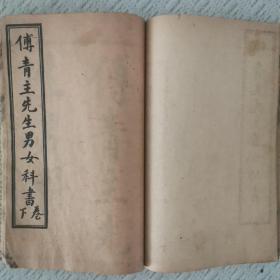 傅青主先生男女科書卷下